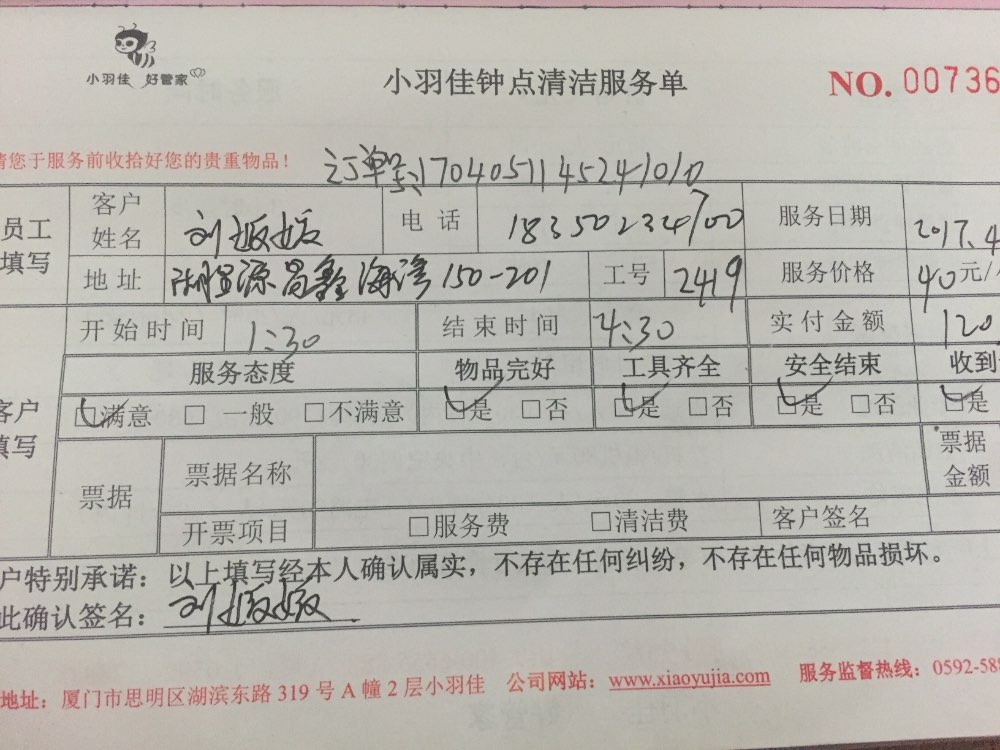 小羽佳 好管家
小羽佳钟点清洁服务单
NO. 00736
请您于服务前收拾好您的贵重物品！
订单号:170405114524101010
员工填写
客户姓名 刘 电话 18350234700 服务日期 2017.4
地址 源昌鑫海湾150-201 工号 2419 服务价格 40元/
开始时间 1:30 结束时间 4:30 实付金额 120
客户填写
服务态度 物品完好 工具齐全 安全结束 收到
☑满意 □一般 □不满意 ☑是 □否 ☑是 □否 ☑是 □否 ☑是
票据 票据名称 票据金额
开票项目 □服务费 □清洁费 客户签名
户特别承诺：以上填写经本人确认属实，不存在任何纠纷，不存在任何物品损坏。
此确认签名：刘
地址：厦门市思明区湖滨东路 319 号 A 幢 2 层小羽佳 公司网站：www.xiaoyujia.com 服务监督热线：0592-588